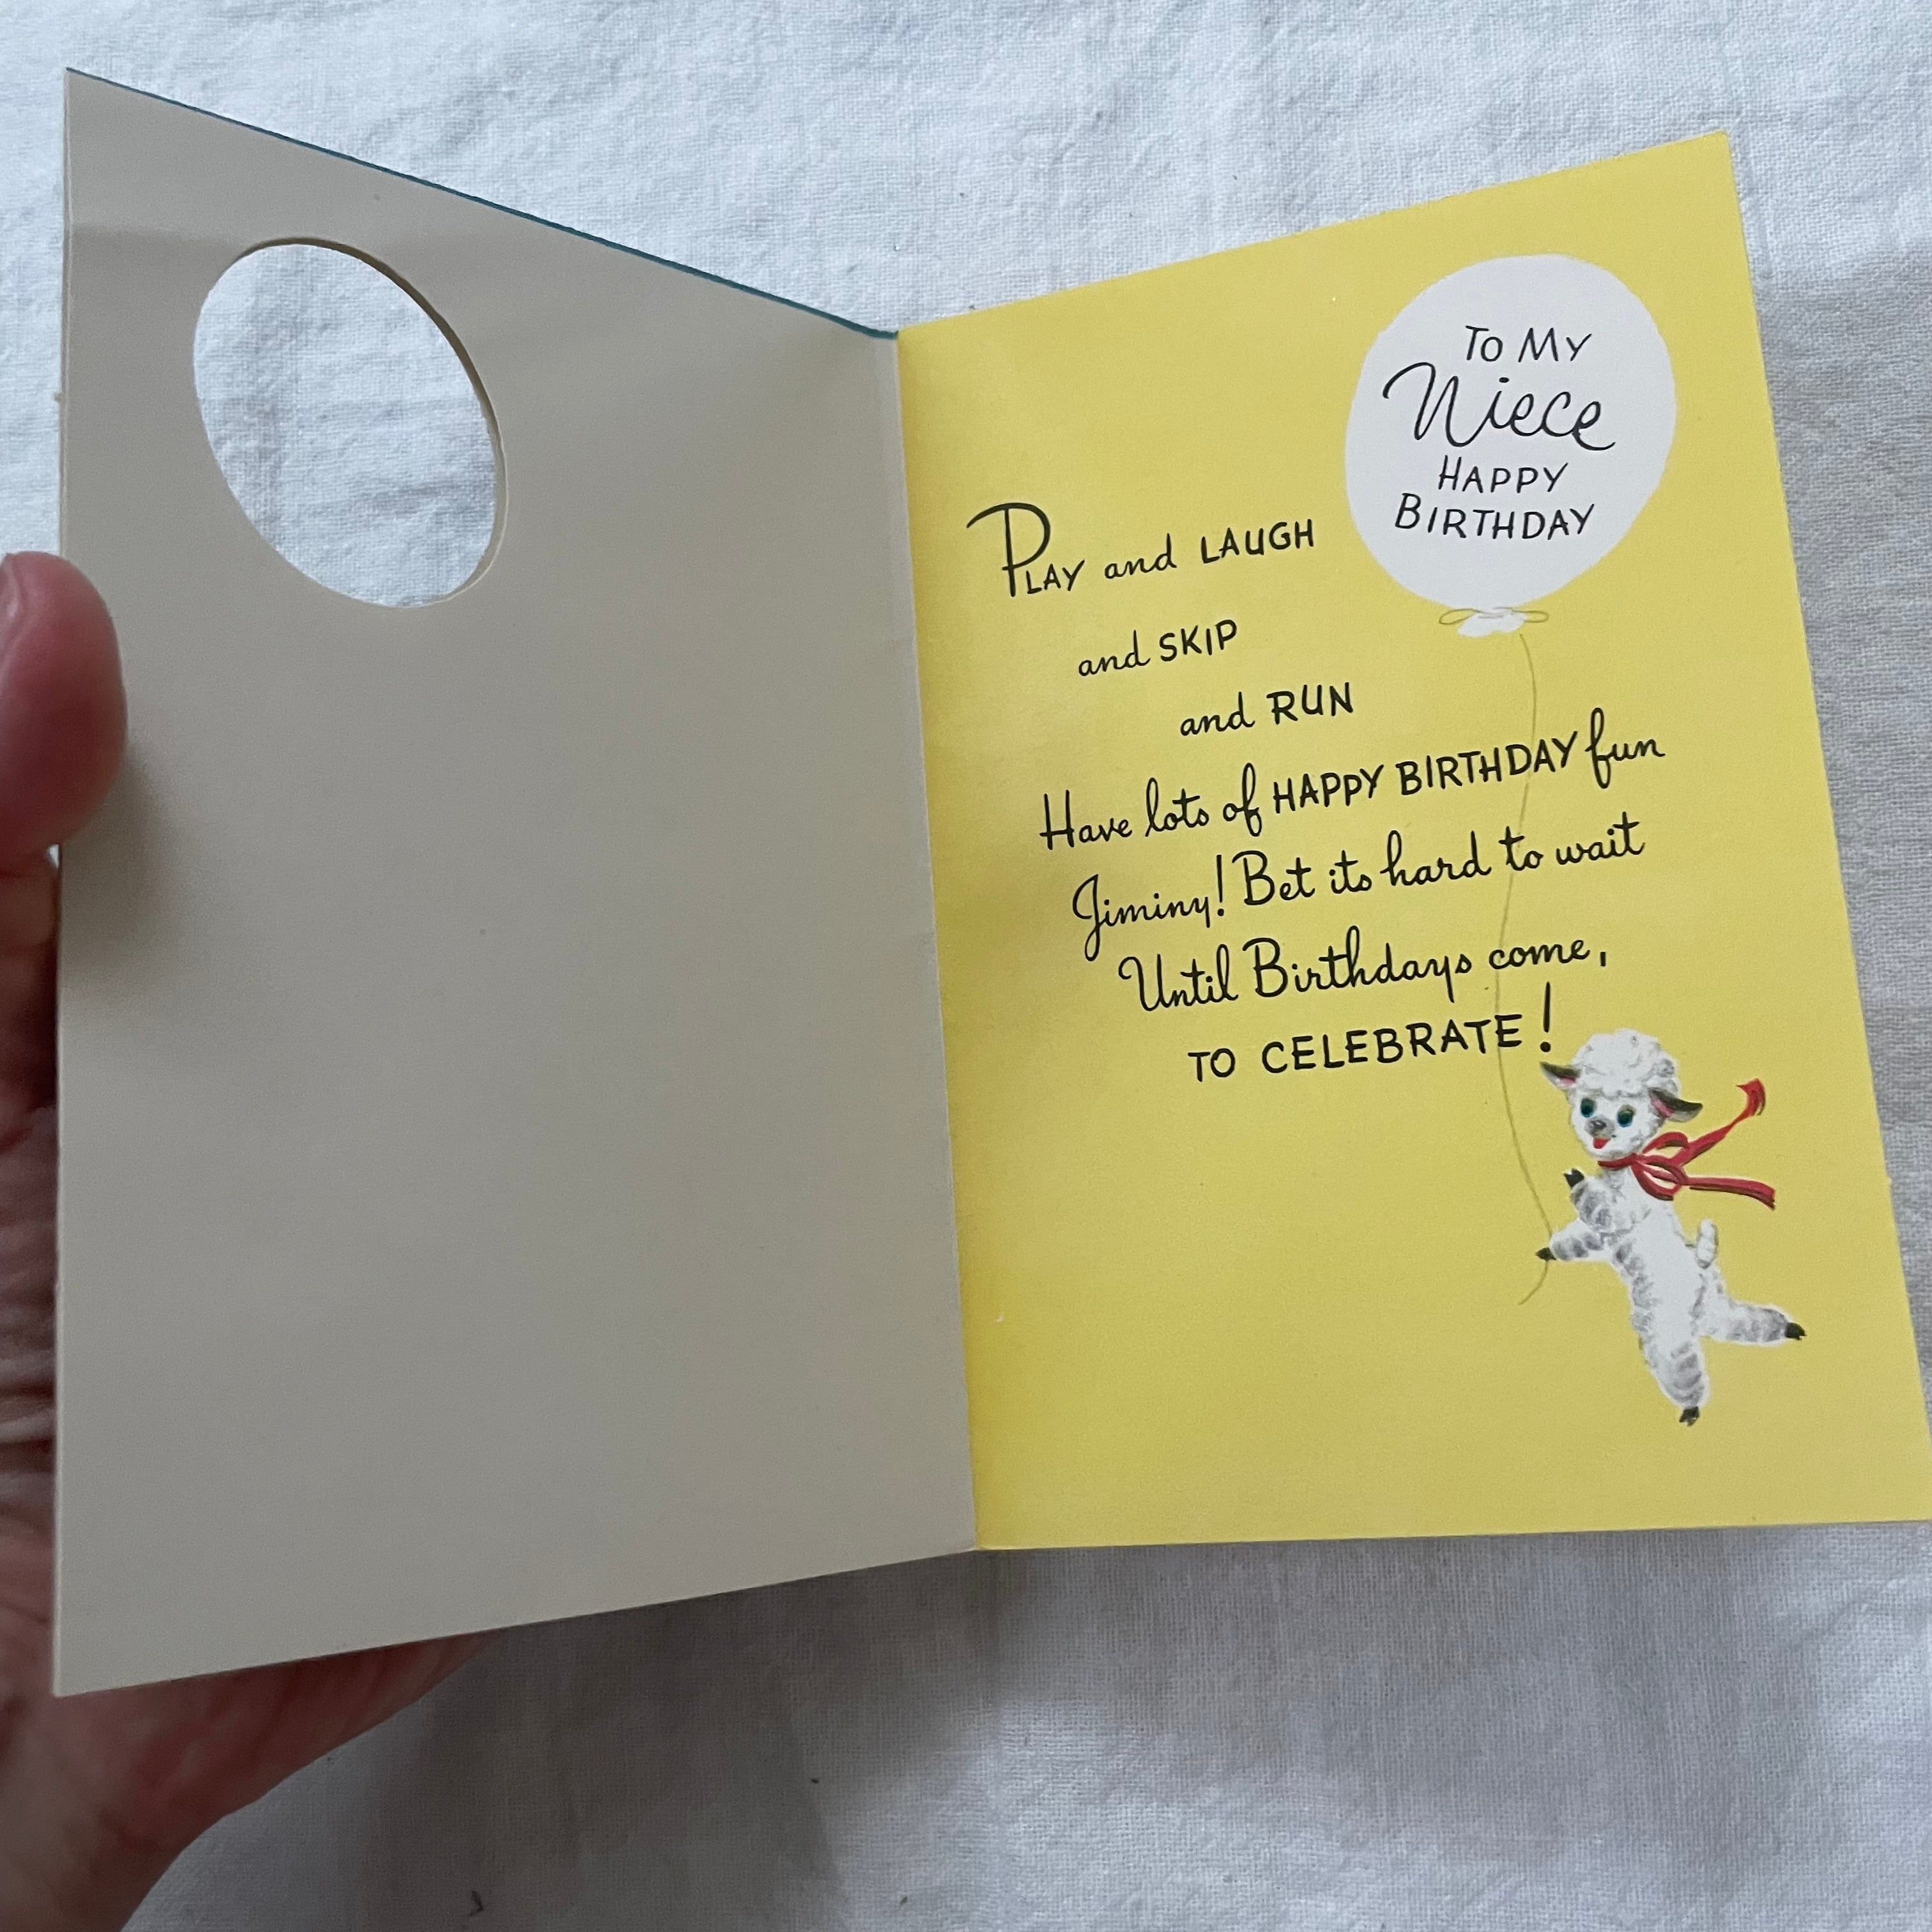 TO MY
Niece
HAPPY
BIRTHDAY
PLAY and LAUGH
and SKIP
and RUN
Have lots of HAPPY BIRTHDAY fun
Jiminy! Bet its hard to wait
Until Birthdays come,
TO CELEBRATE!